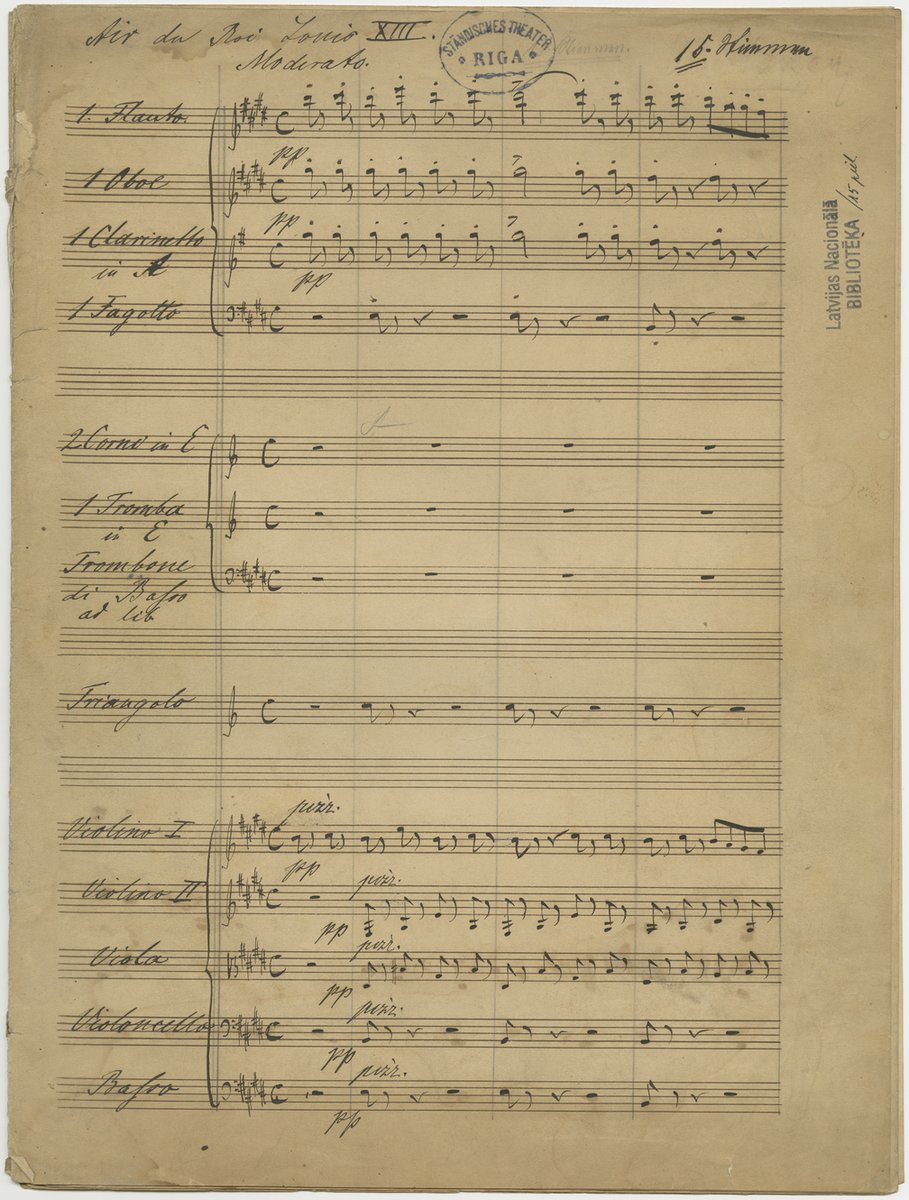 Air du Roi Louis XIII.
Moderato.
STÄNDISCHES THEATER
RIGA
15. Stimmen
Latvijas Nacionālā
BIBLIOTĒKA
1. Flauto.
pp
1 Oboe
pp
1 Clarinetto
in A
pp
1 Fagotto
2 Corno in E
1 Tromba
in E
Trombone
di Basso
ad lib
Triangolo
pizz.
Violino I
pp
pizz.
Violino II
pp
pizz.
Viola
pp
pizz.
Violoncello
pp
pizz.
Basso
pp